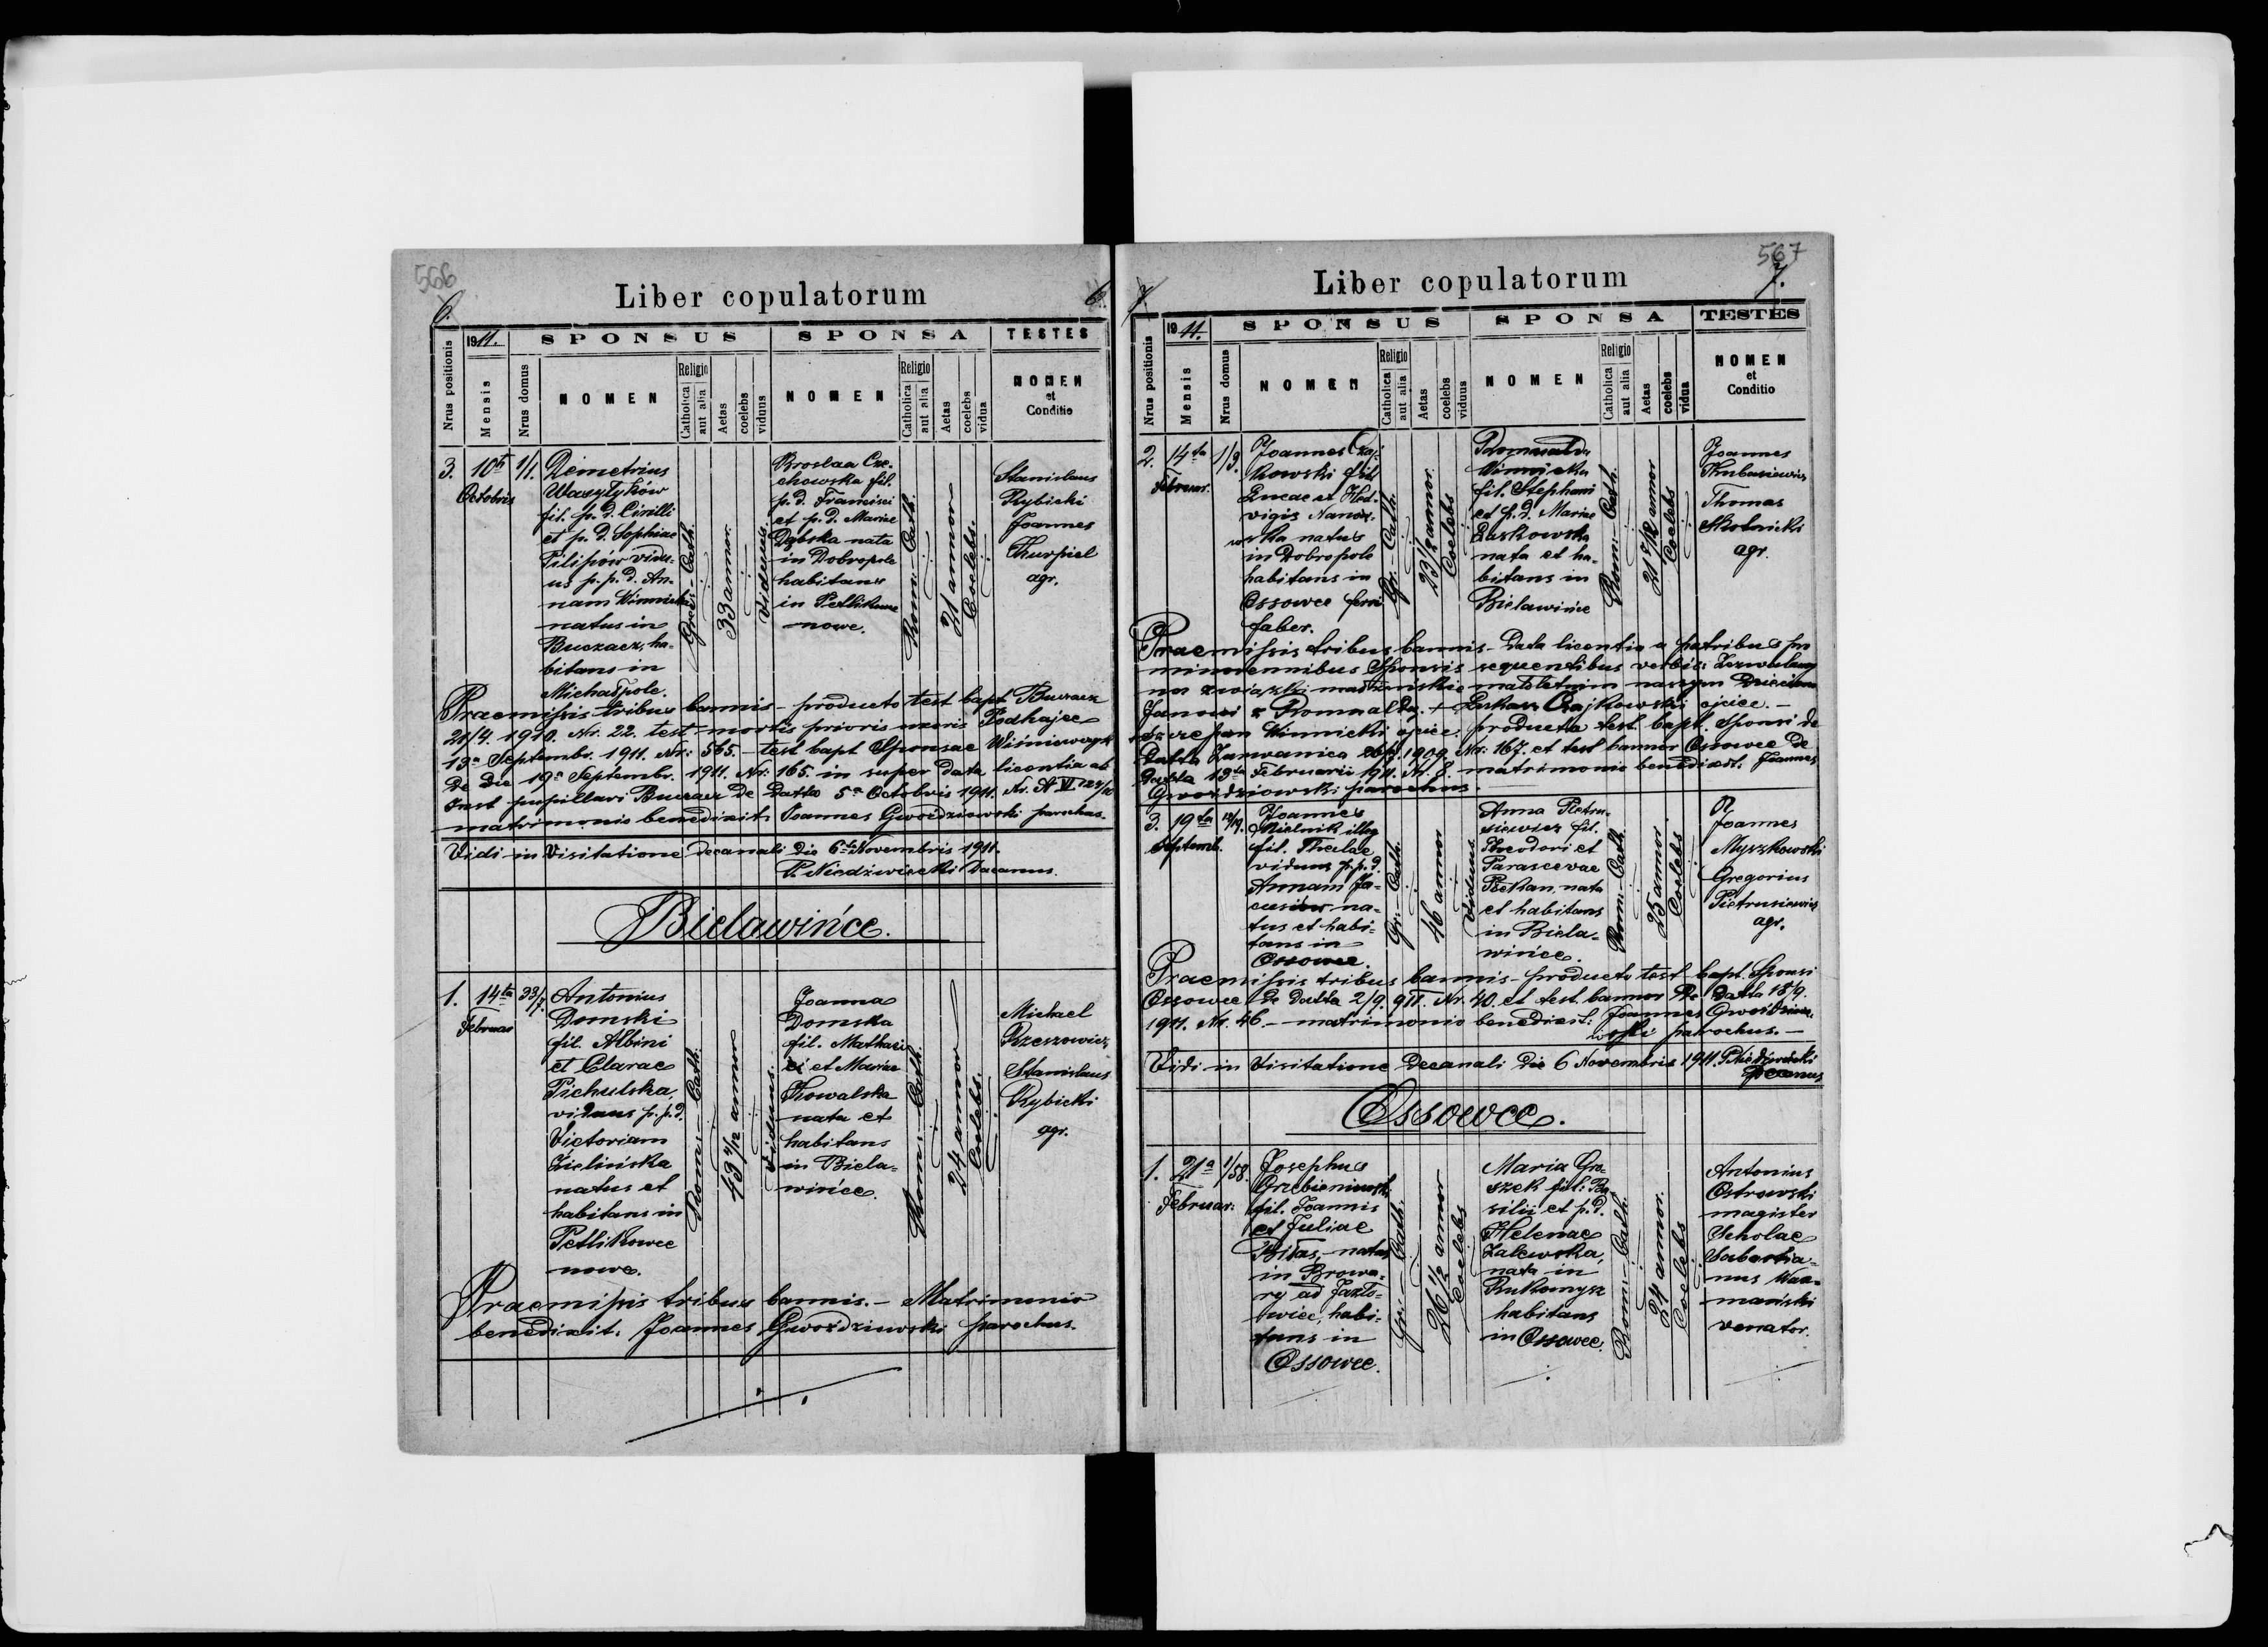 566
Liber copulatorum
6.
6.
Nrus positionis
1911.
Mensis
SPONSUS
SPONSA
TESTES
Nrus domus
NOMEN
Religio
Catholica
aut alia
Aetas
coelebs
viduus
NOMEN
Religio
Catholica
aut alia
Aetas
coelebs
vidua
NOMEN
et
Conditio
3.
10
Octobris
1/1.
Demetrius
Wasylyków
fil. p. d. Cirilli
et p. d. Sophiae
Pilipów vidu-
us p. p. d. An-
nam Winnicka
natus in
Buczacz, ha-
bitans in
Michałpole.
Graec. Cath.
33 annor.
Viduus.
Broslaa Cze-
chowska fil.
p. d. Francisci
et p. d. Mariae
Dąbska nata
in Dobropole
habitans
in Petlikowce
nowe.
Rom. Cath.
21 annor
Coelebs.
Stanislaus
Rybicki
Joannes
Kurpiel
agr.
Praemissis tribus bannis - producto test bapt Buczacz
21/4. 1910. Nr. 22. test mortis prioris uxoris Podhajce
13a Septembr. 1911. Nr: 565. - test bapt Sponsae Wiśniowczyk
de die 19a Septembr. 1911. Nr: 165. in super data licentia ab
Inst pupillari Buczacz de Datto 5a Octobris 1911. Nr. A VI
matrimonio benedixit Joannes Gwoździowski parochus.
Vidi in Visitatione decanali die 6 Novembris 1911.
P. Niedźwiecki Decanus.
Bielawińce.
1.
14ta
Februar
33/7.
Antonius
Domski
fil. Albini
et Clarae
Pichulska,
viduus p. p. d.
Victoriam
Zielińska
natus et
habitans in
Petlikowce
nowe.
Rom. Cath.
43 4/12 annor
Viduus.
Joanna
Domska
fil. Mathae
ei et Mariae
Kowalska
nata et
habitans
in Biela-
wińce.
Rom. Cath.
24 annor
Coelebs.
Michael
Rzeszowicz
Stanislaus
Rybicki
agr.
Praemissis tribus bannis. - Matrimonio
benedixit. Joannes Gwoździowski parochus.
567
Liber copulatorum
7.
7.
Nrus positionis
1911.
Mensis
SPONSUS
SPONSA
TESTES
Nrus domus
NOMEN
Religio
Catholica
aut alia
Aetas
coelebs
viduus
NOMEN
Religio
Catholica
aut alia
Aetas
coelebs
vidua
NOMEN
et
Conditio
2.
14ta
Februar.
1/9.
Joannes Czaj-
kowski fil.
Lucae et Hed-
vigis Nanow-
ska natus
in Dobropole
habitans in
Ossowce ferri
faber.
Gr. Cath.
23 1/2 annor.
Coelebs
Romualda
Winnicka
fil. Stephani
et p. d. Mariae
Laskowska
nata et ha-
bitans in
Bielawińce
Rom. Cath.
21 7/12 annor
Coelebs
Joannes
Kubasiewicz
Thomas
Skolnicki
agr.
Praemissis tribus bannis - Data licentia a patribus pro
minorennibus Sponsis sequentibus verbis: Zezwalamy
na związki małżeńskie małoletnim naszym dzieciom
Janowi z Romualdą. + Łukasz Czajkowski ojciec. -
Szczepan Winnicki ojciec; producta test. bapt. sponsi de
Datto Zarwanica 26/9. 1909. Nr: 167. et test bannor Ossowce de
Datto 13ta Februarii 1911. Nr. 8. - matrimonio benedixit: Joannes
Gwoździowski parochus.
3.
19ta
Septemb.
12/19.
Joannes
Mielnik illeg
fil. Theclae
viduus p. p. d.
Annam Ja-
na-
tus et habi-
tans in
Ossowce.
Gr. Cath.
46 annor
Viduus.
Anna Pietru-
siewicz fil.
Theodori et
Parascevae
Piekan, nata
et habitans
in Biela-
wińce.
Rom. Cath.
25 annor
Coelebs
Joannes
Myszkowski
Gregorius
Pietrusiewicz
agr.
Praemissis tribus bannis producto test bapt. Sponsi
Ossowce de Datto 2/9. 911. Nr. 40. et test. bannor De Datto 18/9.
1911. Nr. 46. - matrimonio benedixit: Joannes Gwoździow-
wski parochus. -
Vidi in Visitatione Decanali die 6 Novembris 1911 P. Niedźwiecki
Decanus
Ossowce.
1.
21a
Februar:
1/58.
Josephus
Grzebieniowski
fil. Joannis
et Juliae
Bitas, natus
in Browa-
ry ad Jazło-
wiec, habi-
tans in
Ossowce.
Gr. Cath.
26 1/2 annor
Coelebs
Maria Gro-
szek fil: Ba
silii et p. d.
Helenae
Zalewska,
nata in
Rukomysz
habitans
in Ossowce.
Rom. Cath.
24 annor.
Coelebs
Antonius
Ostrowski
magister
Scholae
Sabastia-
nus
venator.